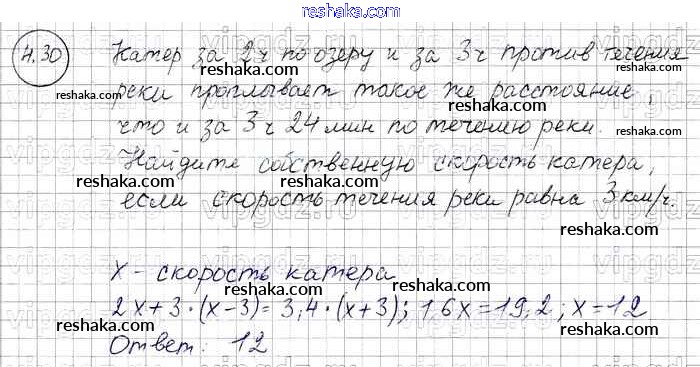 reshaka.com
4.30 Катер за 2ч по озеру и за 3ч против течения
reshaka.com reshaka.com
реки проплывает такое же расстояние,
что и за 3ч 24мин по течению реки.
reshaka.com
Найдите собственную скорость катера,
reshaka.com reshaka.com
если скорость течения реки равна 3км/ч.
X - скорость катера
reshaka.com
2x+3·(x-3)=3,4·(x+3); 1,6x=19,2; x=12
Ответ: 12
reshaka.com reshaka.com